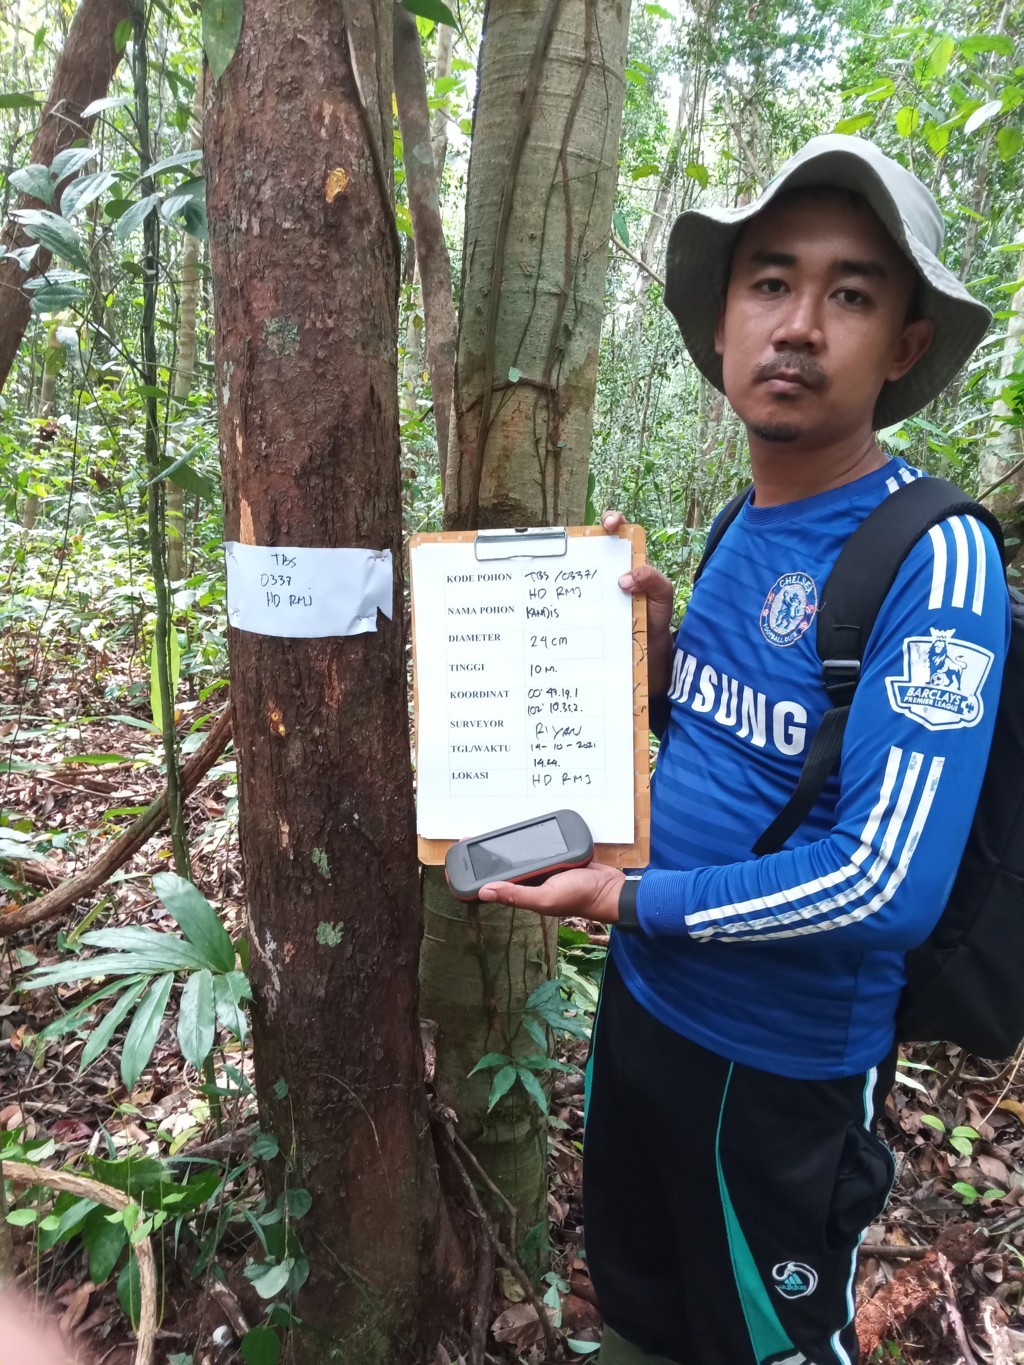 TBS
0337
HD RMJ
KODE POHON TBS /0337/
HD RMJ
NAMA POHON KANDIS
DIAMETER 24 cm
TINGGI 10 M.
KOORDINAT 00° 49.19.1
102° 10.352.
SURVEYOR RIYAN
TGL/WAKTU 14-10-2021
14.24.
LOKASI HD RMJ
CHELSEA
FOOTBALL CLUB
MSUNG
BARCLAYS
PREMIER LEAGUE
adidas